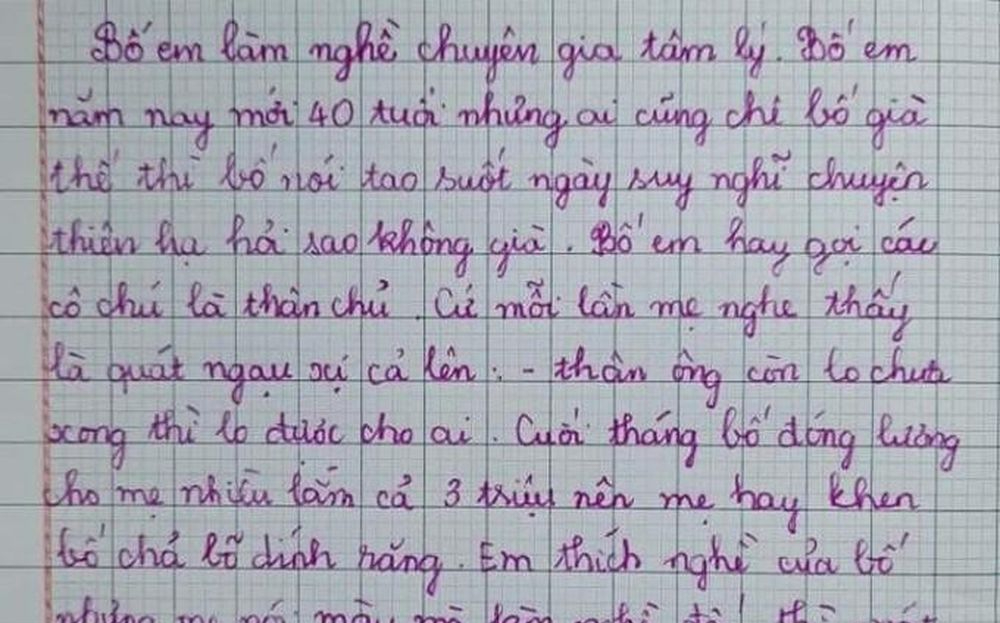 Bố em làm nghề chuyên gia tâm lý. Bố em
năm nay mới 40 tuổi nhưng ai cũng chê bố già
thế thì bố nói tao suốt ngày suy nghĩ chuyện
thiên hạ hỏi sao không già. Bố em hay gọi các
cô chú là thân chủ. Cứ mỗi lần mẹ nghe thấy
là quát ngạu xị cả lên: - thân ông còn lo chưa
xong thì lo được cho ai. Cuối tháng bố đóng lương
cho mẹ nhiều lắm cả 3 triệu nên mẹ hay khen
bố chả bõ dính răng. Em thích nghề của bố
nhưng mẹ nói mày mà làm nghề đó thì